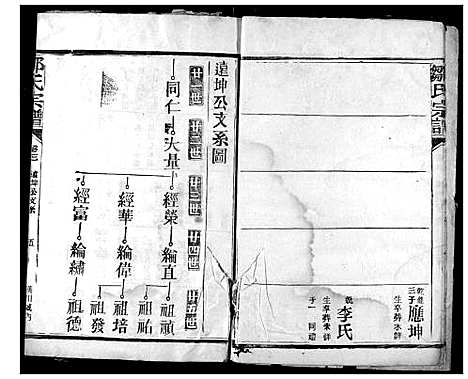 鄒氏宗譜
乾龍
三子應坤
生卒葬未詳
乾
李氏
生卒葬未詳
子一
遠坤公支系圖
廿一世
廿二世
廿三世
廿四世
廿五世
同仁
大量
經榮
綸直
祖禎
祖祐
經華
綸偉
祖培
祖發
經富
綸繡
祖德
鄒氏宗譜
卷三
遠坤公支系
五